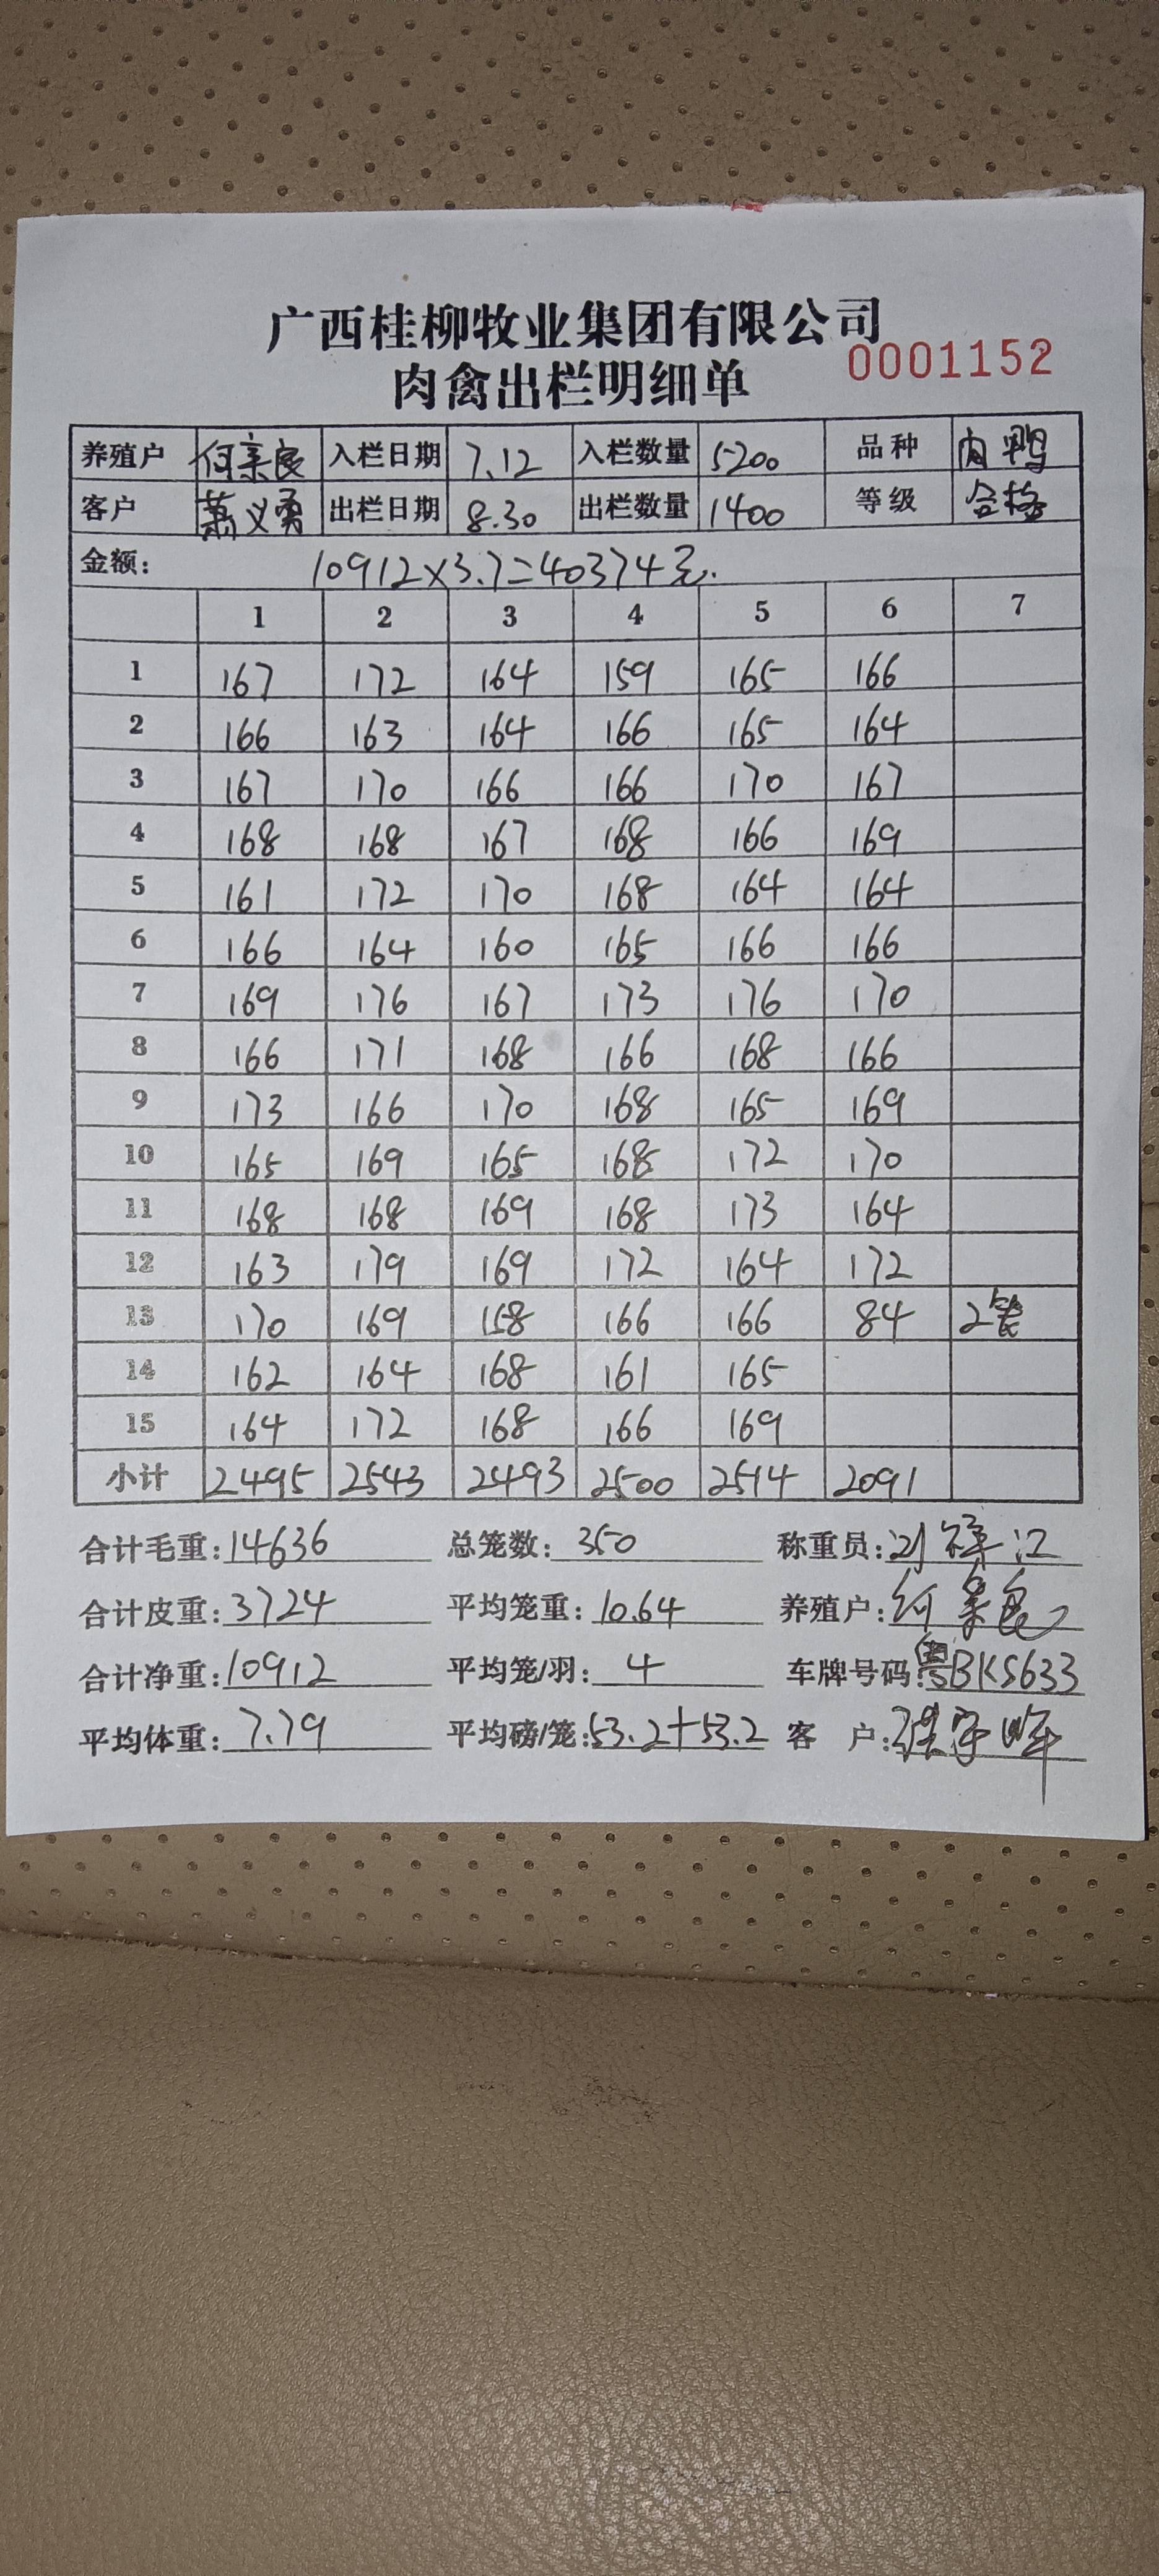 广西桂柳牧业集团有限公司
肉禽出栏明细单 0001152
养殖户 何亲良 入栏日期 7.12 入栏数量 5200 品种 肉鸭
客户 萧义勇 出栏日期 8.30 出栏数量 1400 等级 合格
金额: 10912×3.7=40374元.
1 2 3 4 5 6 7
1 167 172 164 159 165 166
2 166 163 164 166 165 164
3 167 170 166 166 170 167
4 168 168 167 168 166 169
5 161 172 170 168 164 164
6 166 164 160 165 166 166
7 169 176 167 173 176 170
8 166 171 168 166 168 166
9 173 166 170 168 165 169
10 165 169 165 168 172 170
11 168 168 169 168 173 164
12 163 179 169 172 164 172
13 170 169 158 166 166 84 2笼
14 162 164 168 161 165
15 164 172 168 166 169
小计 2495 2543 2493 2500 2514 2091
合计毛重: 14636 总笼数: 350 称重员:
合计皮重: 3724 平均笼重: 10.64 养殖户: 何亲良
合计净重: 10912 平均笼/羽: 4 车牌号码: 粤BKS633
平均体重: 7.79 平均磅/笼: 53.2+53.2 客 户: